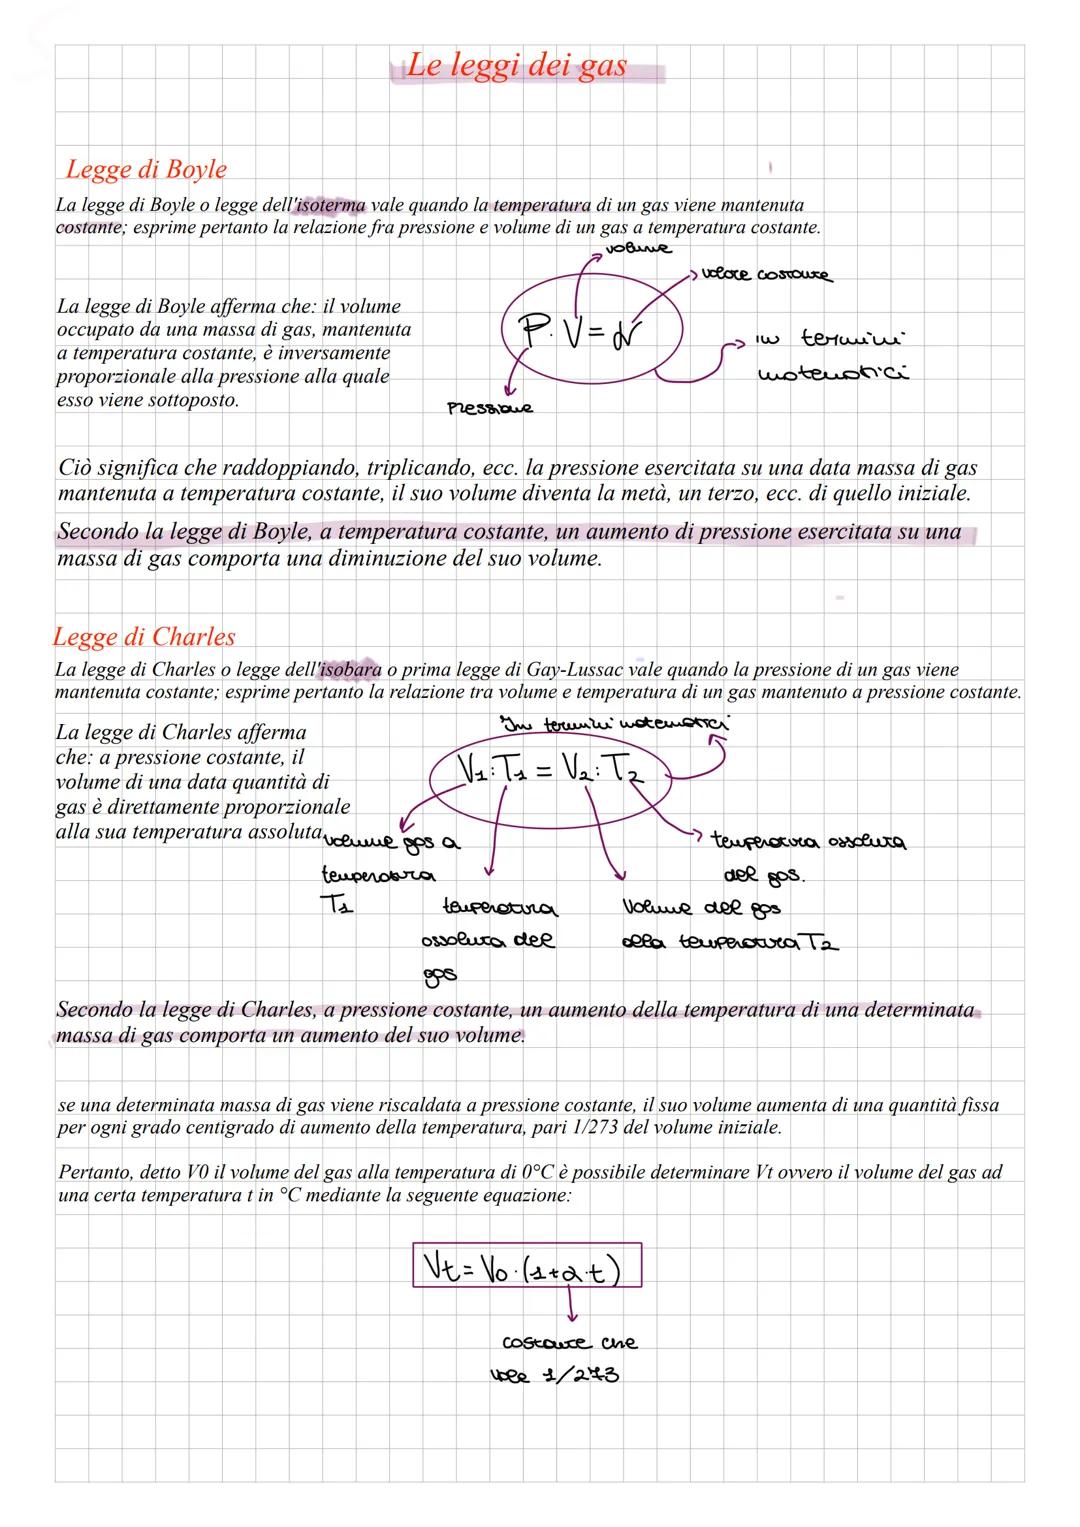 Le leggi dei gas
Legge di Boyle
La legge di Boyle o legge dell'isoterma vale quando la temperatura di un gas viene mantenuta
costante; esprime pertanto la relazione fra pressione e volume di un gas a temperatura costante.
volume
valore costante
La legge di Boyle afferma che: il volume
occupato da una massa di gas, mantenuta
a temperatura costante, è inversamente
proporzionale alla pressione alla quale
esso viene sottoposto.
in termini
matematici
pressione
Ciò significa che raddoppiando, triplicando, ecc. la pressione esercitata su una data massa di gas
mantenuta a temperatura costante, il suo volume diventa la metà, un terzo, ecc. di quello iniziale.
Secondo la legge di Boyle, a temperatura costante, un aumento di pressione esercitata su una
massa di gas comporta una diminuzione del suo volume.
Legge di Charles
La legge di Charles o legge dell'isobara o prima legge di Gay-Lussac vale quando la pressione di un gas viene
mantenuta costante; esprime pertanto la relazione tra volume e temperatura di un gas mantenuto a pressione costante.
In termini matematici
La legge di Charles afferma
che: a pressione costante, il
volume di una data quantità di
gas è direttamente proporzionale
alla sua temperatura assoluta.
V1:T1 = V2:T2
volume gas a
temperatura
T1
temperatura
assoluta del
gas
Volume del gas
alla temperatura T2
temperatura assoluta
del gas.
Secondo la legge di Charles, a pressione costante, un aumento della temperatura di una determinata
massa di gas comporta un aumento del suo volume.
se una determinata massa di gas viene riscaldata a pressione costante, il suo volume aumenta di una quantità fissa
per ogni grado centigrado di aumento della temperatura, pari 1/273 del volume iniziale.
Pertanto, detto V0 il volume del gas alla temperatura di 0°C è possibile determinare Vt ovvero il volume del gas ad
una certa temperatura t in °C mediante la seguente equazione:
Vt = V0·(1+α·t)
costante che
vale 1/273